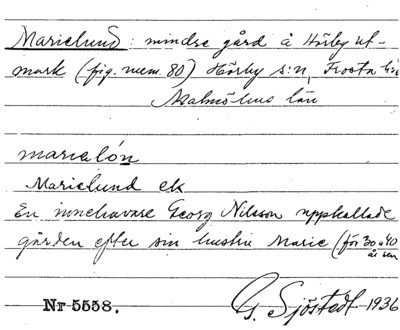 Marielund: mindre gård å Hörby ut-
mark (fig. mem. 80) Hörby s:n, Frosta h:d
Malmöhus län
marialón
Marielund ek
En innehavare Georg Nilsson uppkallade
gården efter sin hustru Marie (för 30 à 40
år sen
Nr 5558.
G. Sjöstedt 1936